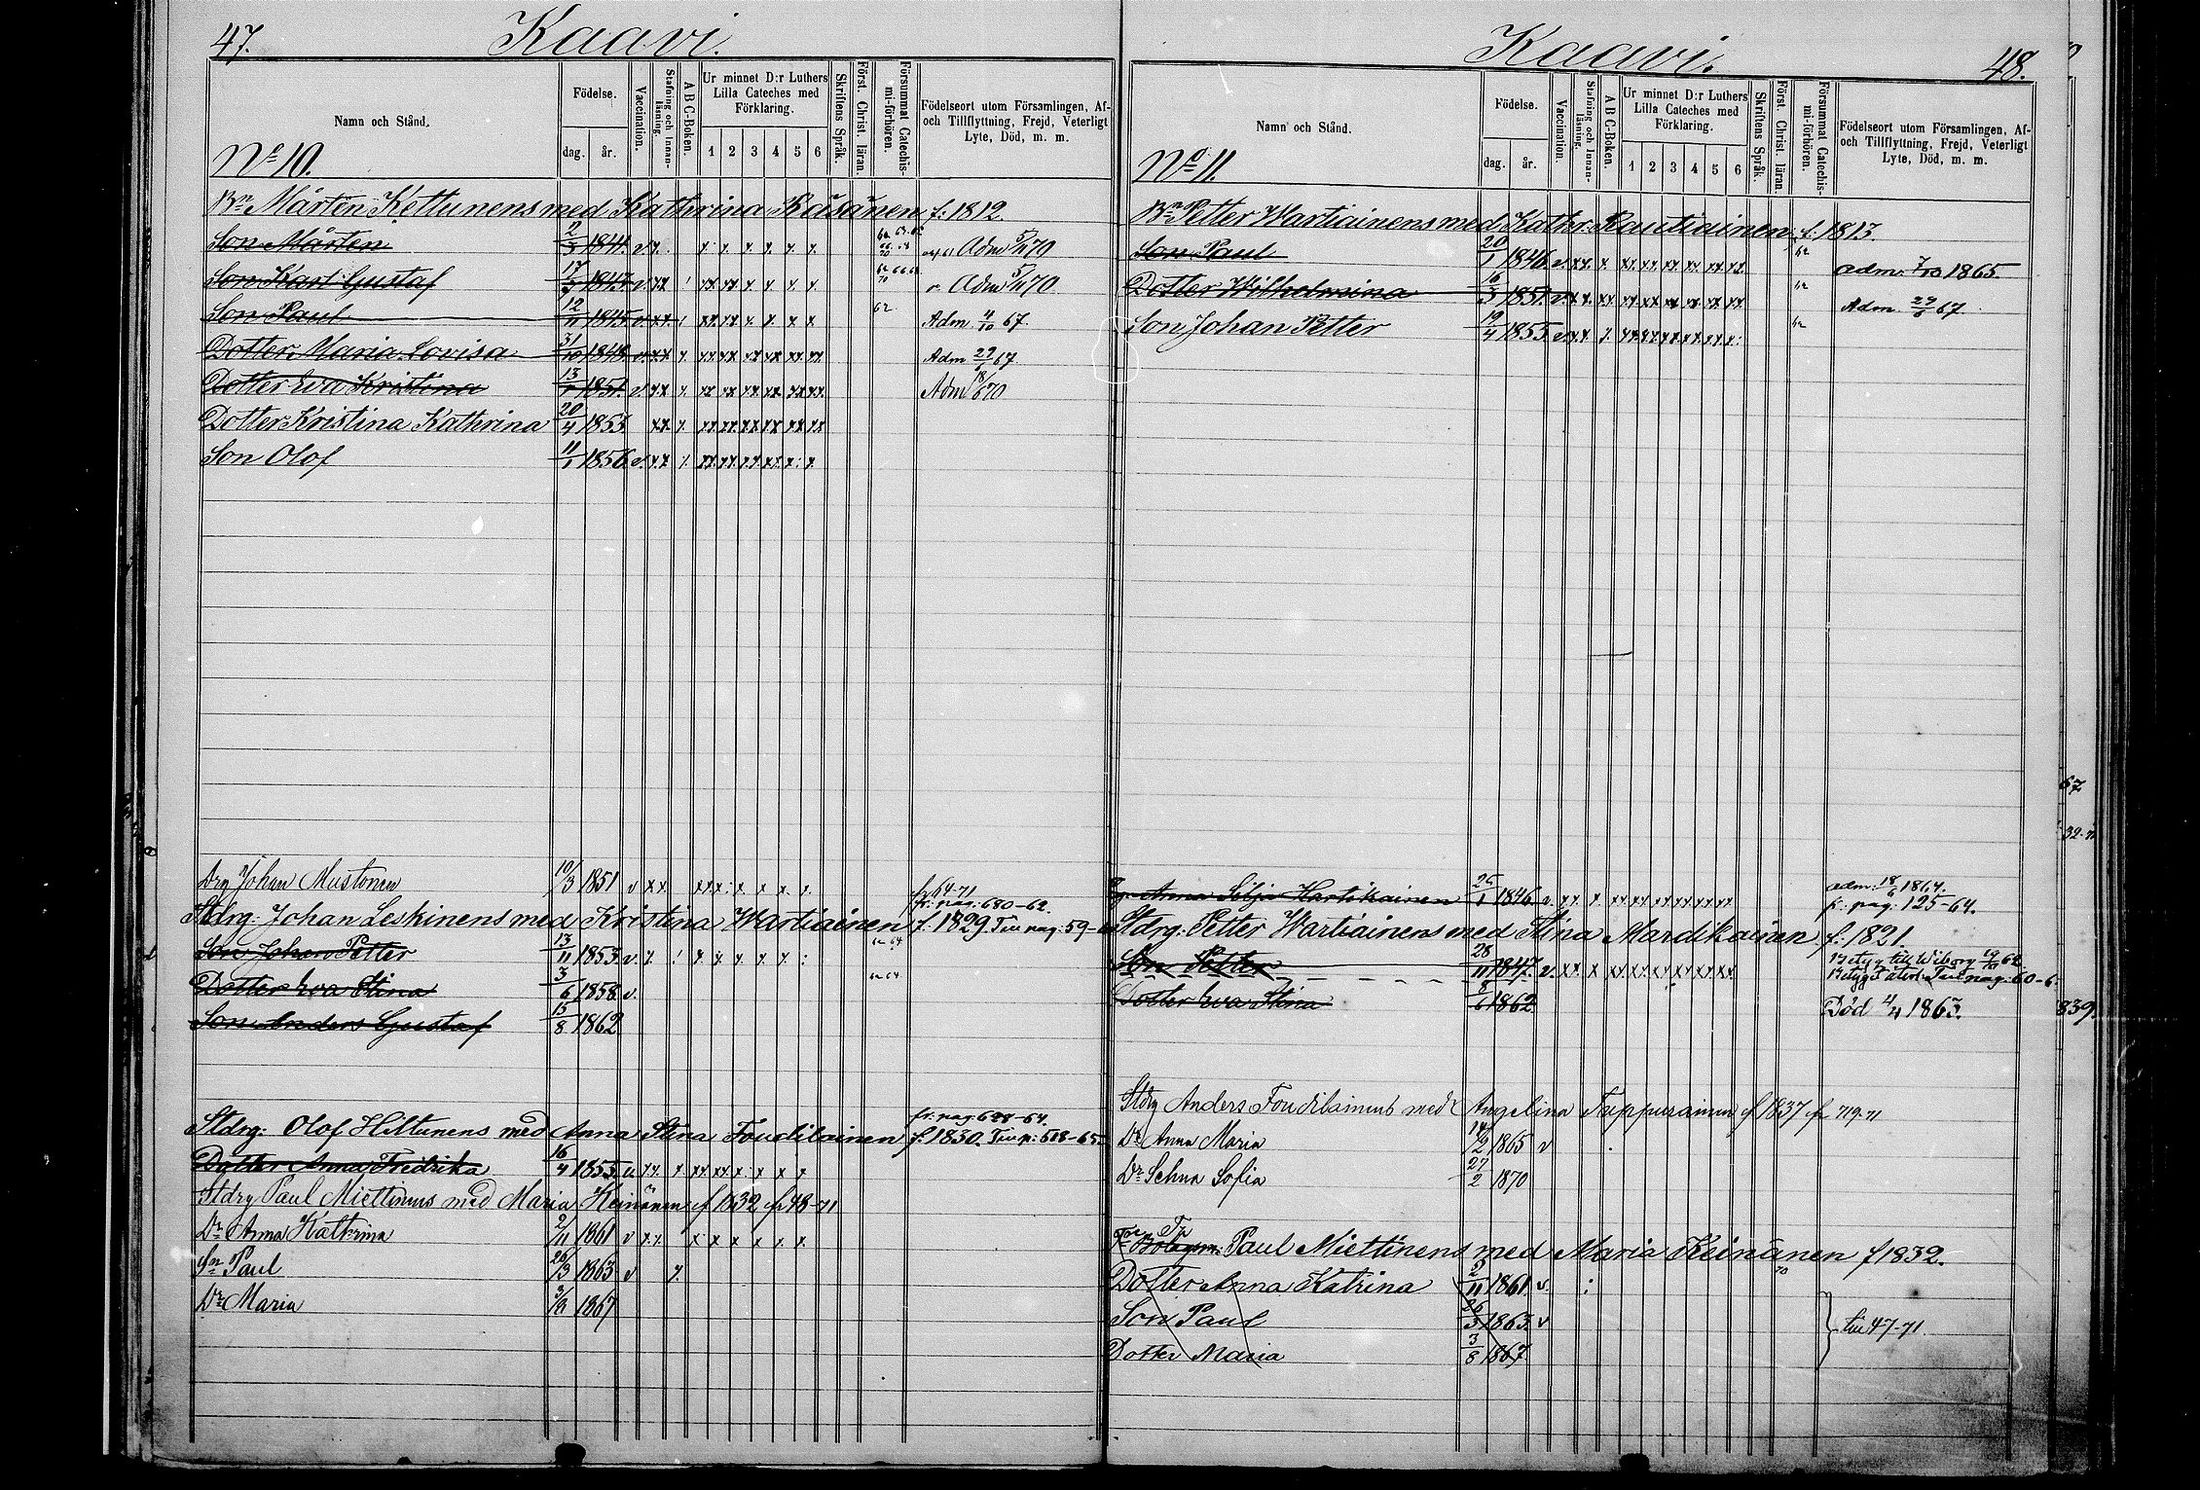 47.
Kaavi.
Namn och Stånd.
Födelse.
dag.
år.
Vaccination.
Stafning och Innanläsning.
A B C-Boken.
Ur minnet D:r Luthers Lilla Cateches med Förklaring.
1 2 3 4 5 6
Skriftens Språk.
Först. Christ. läran.
Försummat Catechismi-förhören.
Födelseort utom Församlingen, Af- och Tillflyttning, Frejd, Veterligt Lyte, Död, m. m.
No 10.
Bn Mårten Kettunens med Kathrina Räsänen f: 1812.
Son Mårten 2/3 1844. Adm 5/11 70
Son Karl Gustaf 17/3 1847. Adm 5/11 70
Son Paul 12/11 1845. 62. Adm 4/10 67.
Dotter Maria Lovisa 31/10 1848. Adm 29/6 67
Dotter Eva Kristina 13/1 1851. Adm 18/6 70
Dotter Kristina Kathrina 20/4 1853.
Son Olof 11/1 1856.
Drg Johan Mustonen 10/3 1851 v fr 64-71
fr: pag: 680-62.
Stdrg: Johan Leskinens med Kristina Wartiainen f: 1829.
Son Johan Petter 13/11 1853. v.
Dotter Eva Stina 3/6 1858. v.
Son Anders Gustaf 15/8 1862
fr: pag: 688-64.
Stdrg: Olof Hiltunens med Anna Stina Foudilainen f: 1830.
Dotter Anna Fredrika 16/4 1855.
Stdrg Paul Miettinens med Maria Keinänen f 1832 fr 48-71
Dr Anna Kathrina 2/11 1861 v
Sn Paul 26/3 1863 v
Dr Maria 3/8 1867
Kaavi.
48.
Namn och Stånd.
Födelse.
dag.
år.
Vaccination.
Stafning och Innanläsning.
A B C-Boken.
Ur minnet D:r Luthers Lilla Cateches med Förklaring.
1 2 3 4 5 6
Skriftens Språk.
Först. Christ. läran.
Försummat Catechismi-förhören.
Födelseort utom Församlingen, Af- och Tillflyttning, Frejd, Veterligt Lyte, Död, m. m.
No 11.
Bn Petter Wartiainens med Kathr: Rautiainen f: 1813.
Son Paul 20/1 1846. 62 adm: 7/10 1865
Dotter Wilhelmina 16/3 1851. 62 Adm 29/6 67.
Son Johan Petter 19/4 1855. 62
Anna Silja Hartikainen 25/1 1846. adm: 18/6 1864.
fr: pag: 125-64.
Stdrg: Petter Wartiainens med Stina Mardikainen f: 1821.
Son Petter 28/11 1847. v.
Dotter Eva Stina 8/6 1862. Död 4/4 1863.
Stdrg Anders Foudilainens med Angelina Tuppurainen f 1837 fr 719-71
Dr Anna Maria 14/2 1865 v
Dr Selma Sofia 27/2 1870
Paul Miettinens med Maria Keinänen f 1832.
Dotter Anna Katrina 2/11 1861. v.
Son Paul 26/3 1863. v till 47-71.
Dotter Maria 3/8 1867
67
32-
839.